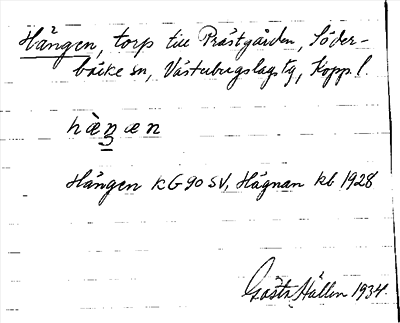 Hängen, torp till Prästgården, Söder-
bäcke sn, Västerbergslags tg, Kopp. l.
hæ̀ŋæn
Hängen KG 90 SV, Hägnan kb 1928
Gösta Hallen 1934.